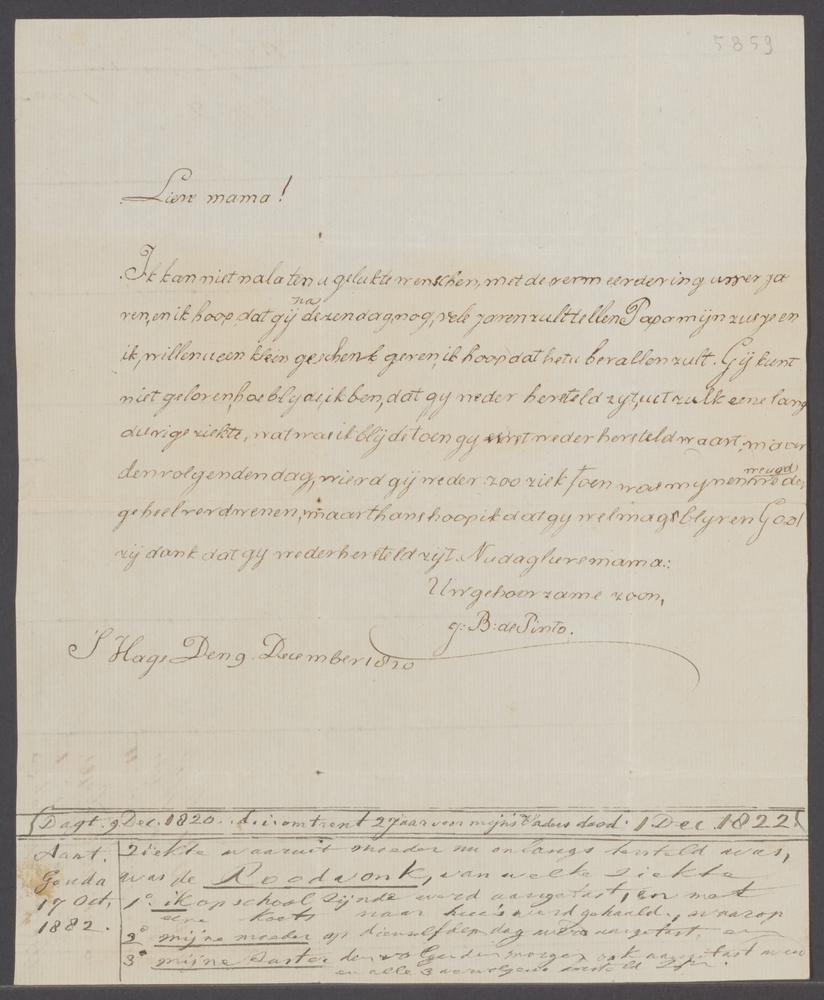 5859
Lieve mama!
Ik kan niet nalaten u geluk te wenschen, met de vermeerdering uwer ja
ren, en ik hoop, dat gij na dezen dag, nog, vele jaren zult tellen Papa mijn zusje en
ik, willen u een klein geschenk geven, ik hoop dat het u bevallen zult. Gij kunt
niet geloven, hoe bly as ik ben, dat gy weder hersteld zyt, uit zulk eene lang
durige ziekte, wat was ik blij de toen gy eerst weder hersteld waart, maar
den volgenden dag, wierd gij weder zoo ziek toen was mynen vreugde
geheel verdwenen, maar thans hoop ik dat gy wel mags blyven God
zij dank dat gy weder hersteld zyt. Nu dag lieve mama:
Uw gehoorzame zoon,
g: B: de Pinto.
S Hage Den 9 December 1820
Dagt. 9 Dec. 1820. d.i. omtrent 2 jaar voor mijns Vaders dood 1 Dec. 1822.
Aant.
Gouda
17 Oct.
1882.
Ziekte waaruit moeder nu onlangs hersteld was,
was de Roodvonk, van welke ziekte
1° ik op school zijnde werd aangetast, en met
eene koets naar huis werd gehaald, waarop
2° mijne moeder op dienzelfden dag werd aangetast en
3° mijne Zuster den volgenden morgen ook aangetast werd
en alle 3 vervolgens hersteld zijn.